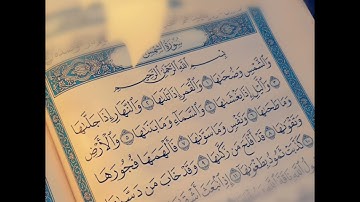 سورة الشمس
بسم الله الرحمن الرحيم
والشمس وضحىها ١ والقمر إذا تلىها ٢ والنهار إذا جلىها
٣ واليل إذا يغشىها ٤ والسماء وما بنىها ٥ والأرض
وما طحىها ٦ ونفس وما سوىها ٧ فألهمها فجورها
وتقوىها ٨ قد أفلح من زكىها ٩ وقد خاب من دسىها
كذبت ثمود بطغوىها